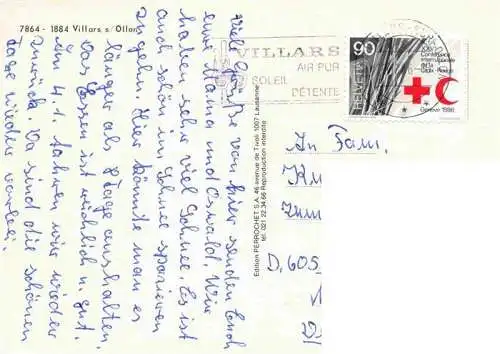 7864 - 1884 Villars s/Ollon
Viele Grüße von hier senden Euch
eure Mama und Oswald. Wir
haben sehr viel Schnee. Es ist
auch schön im Schnee spazieren
zugehn. Hier könnte man es
länger als 8 Tage aushalten.
Das Essen ist reichlich u. gut.
Am 4.1. fahren wir wieder
zurück. Da sind die schönen
Tage wieder vorbei.
Edition PERROCHET S.A. 46 avenue de Tivoli 1007 Lausanne
tél. 021 22.34 66 Reproduction interdite
VILLARS
AIR PUR
SOLEIL
DÉTENTE
90
HELVETIA
Conférence
internationale
de la
Croix-Rouge
Genève 1986
An Fam.
D. 605